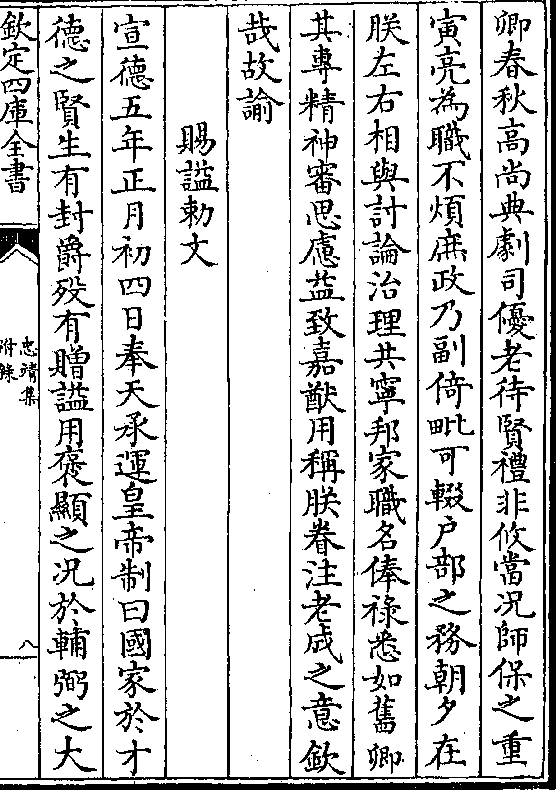 卿春秋高尚典劇司優老待賢禮非攸當况師保之重
寅亮為職不煩庶政乃副倚毗可輟户部之務朝夕在
朕左右相與討論治理共寧邦家職名俸祿悉如舊卿
其專精神審思慮益致嘉猷用稱朕眷注老成之意欽
哉故諭
賜諡勅文
宣德五年正月初四日奉天承運皇帝制曰國家於才
德之賢生有封爵殁有贈諡用褒顯之况於輔弼之大
欽定四庫全書
忠靖集
附録
八